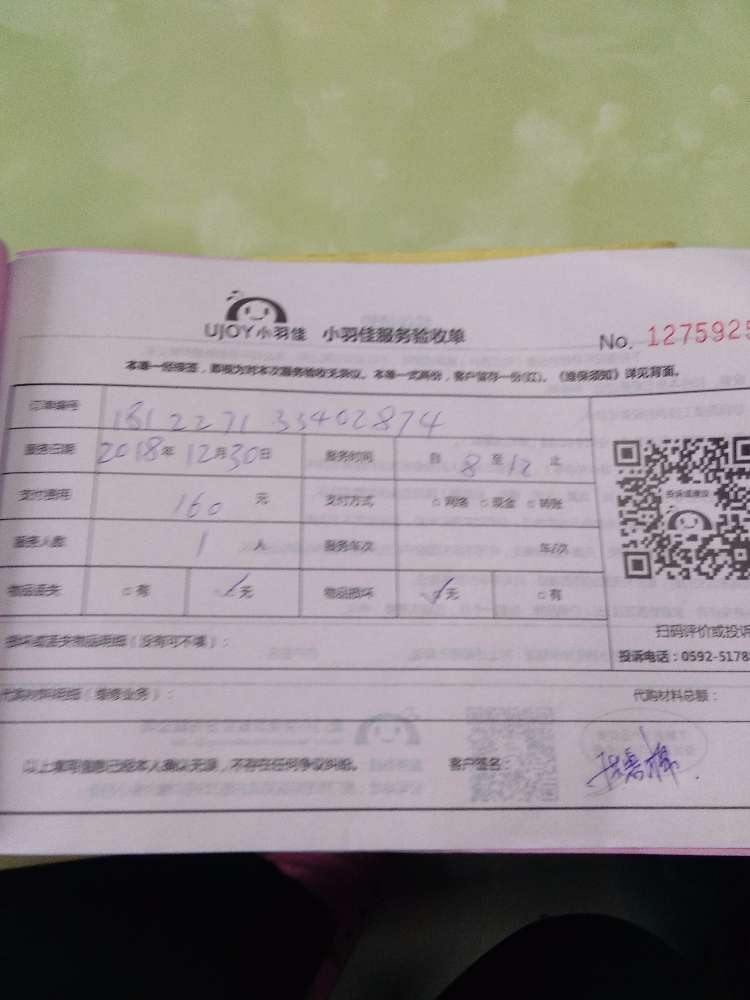 UJOY小羽佳 小羽佳服务验收单
No. 1275925
本单一经签署，即视为对本次服务验收无异议。本单一式两份，客户留存一份(红)。《维保须知》详见背面。
订单编号 181227133402874
服务日期 2018年12月30日 服务时间 自 8 至 12 止
支付费用 160 元 支付方式 □网络 □现金 □转账
投诉或建议
服务人数 1 人 服务车次 车/次
物品丢失 □有 ☑无 物品损坏 ☑无 □有
损坏或丢失物品明细（没有可不填）：
扫码评价或投诉
投诉电话：0592-5178
代购材料明细（维修业务）： 代购材料总额：
以上填写信息已经本人确认无误，不存在任何争议纠纷。 客户签名：